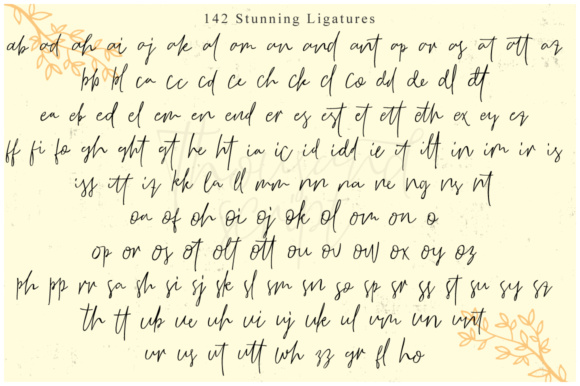 142 Stunning Ligatures
ab ad ah ai aj ak al am an and ant ap ar as at att az
bb bl ca cc cd ce ch ck cl co dd de dl dt
ea eb ed el em en end er es est et ett eth ex ey ez
ff fi fo gh ght gt he ht ia ic id idd ie it itt in im ir is
iss itt iz kk la ll mm nn na ne ng ns nt
oa of oh oi oj ok ol om on o
op or os ot olt ott ou ov ow ox oy oz
ph pp rr sa sh si sj sk sl sm sn so sp sr ss st su sy sz
th tt ub ue uh ui uj uk ul um un unt
ur us ut utt wh zz gr fl ho
thousand script